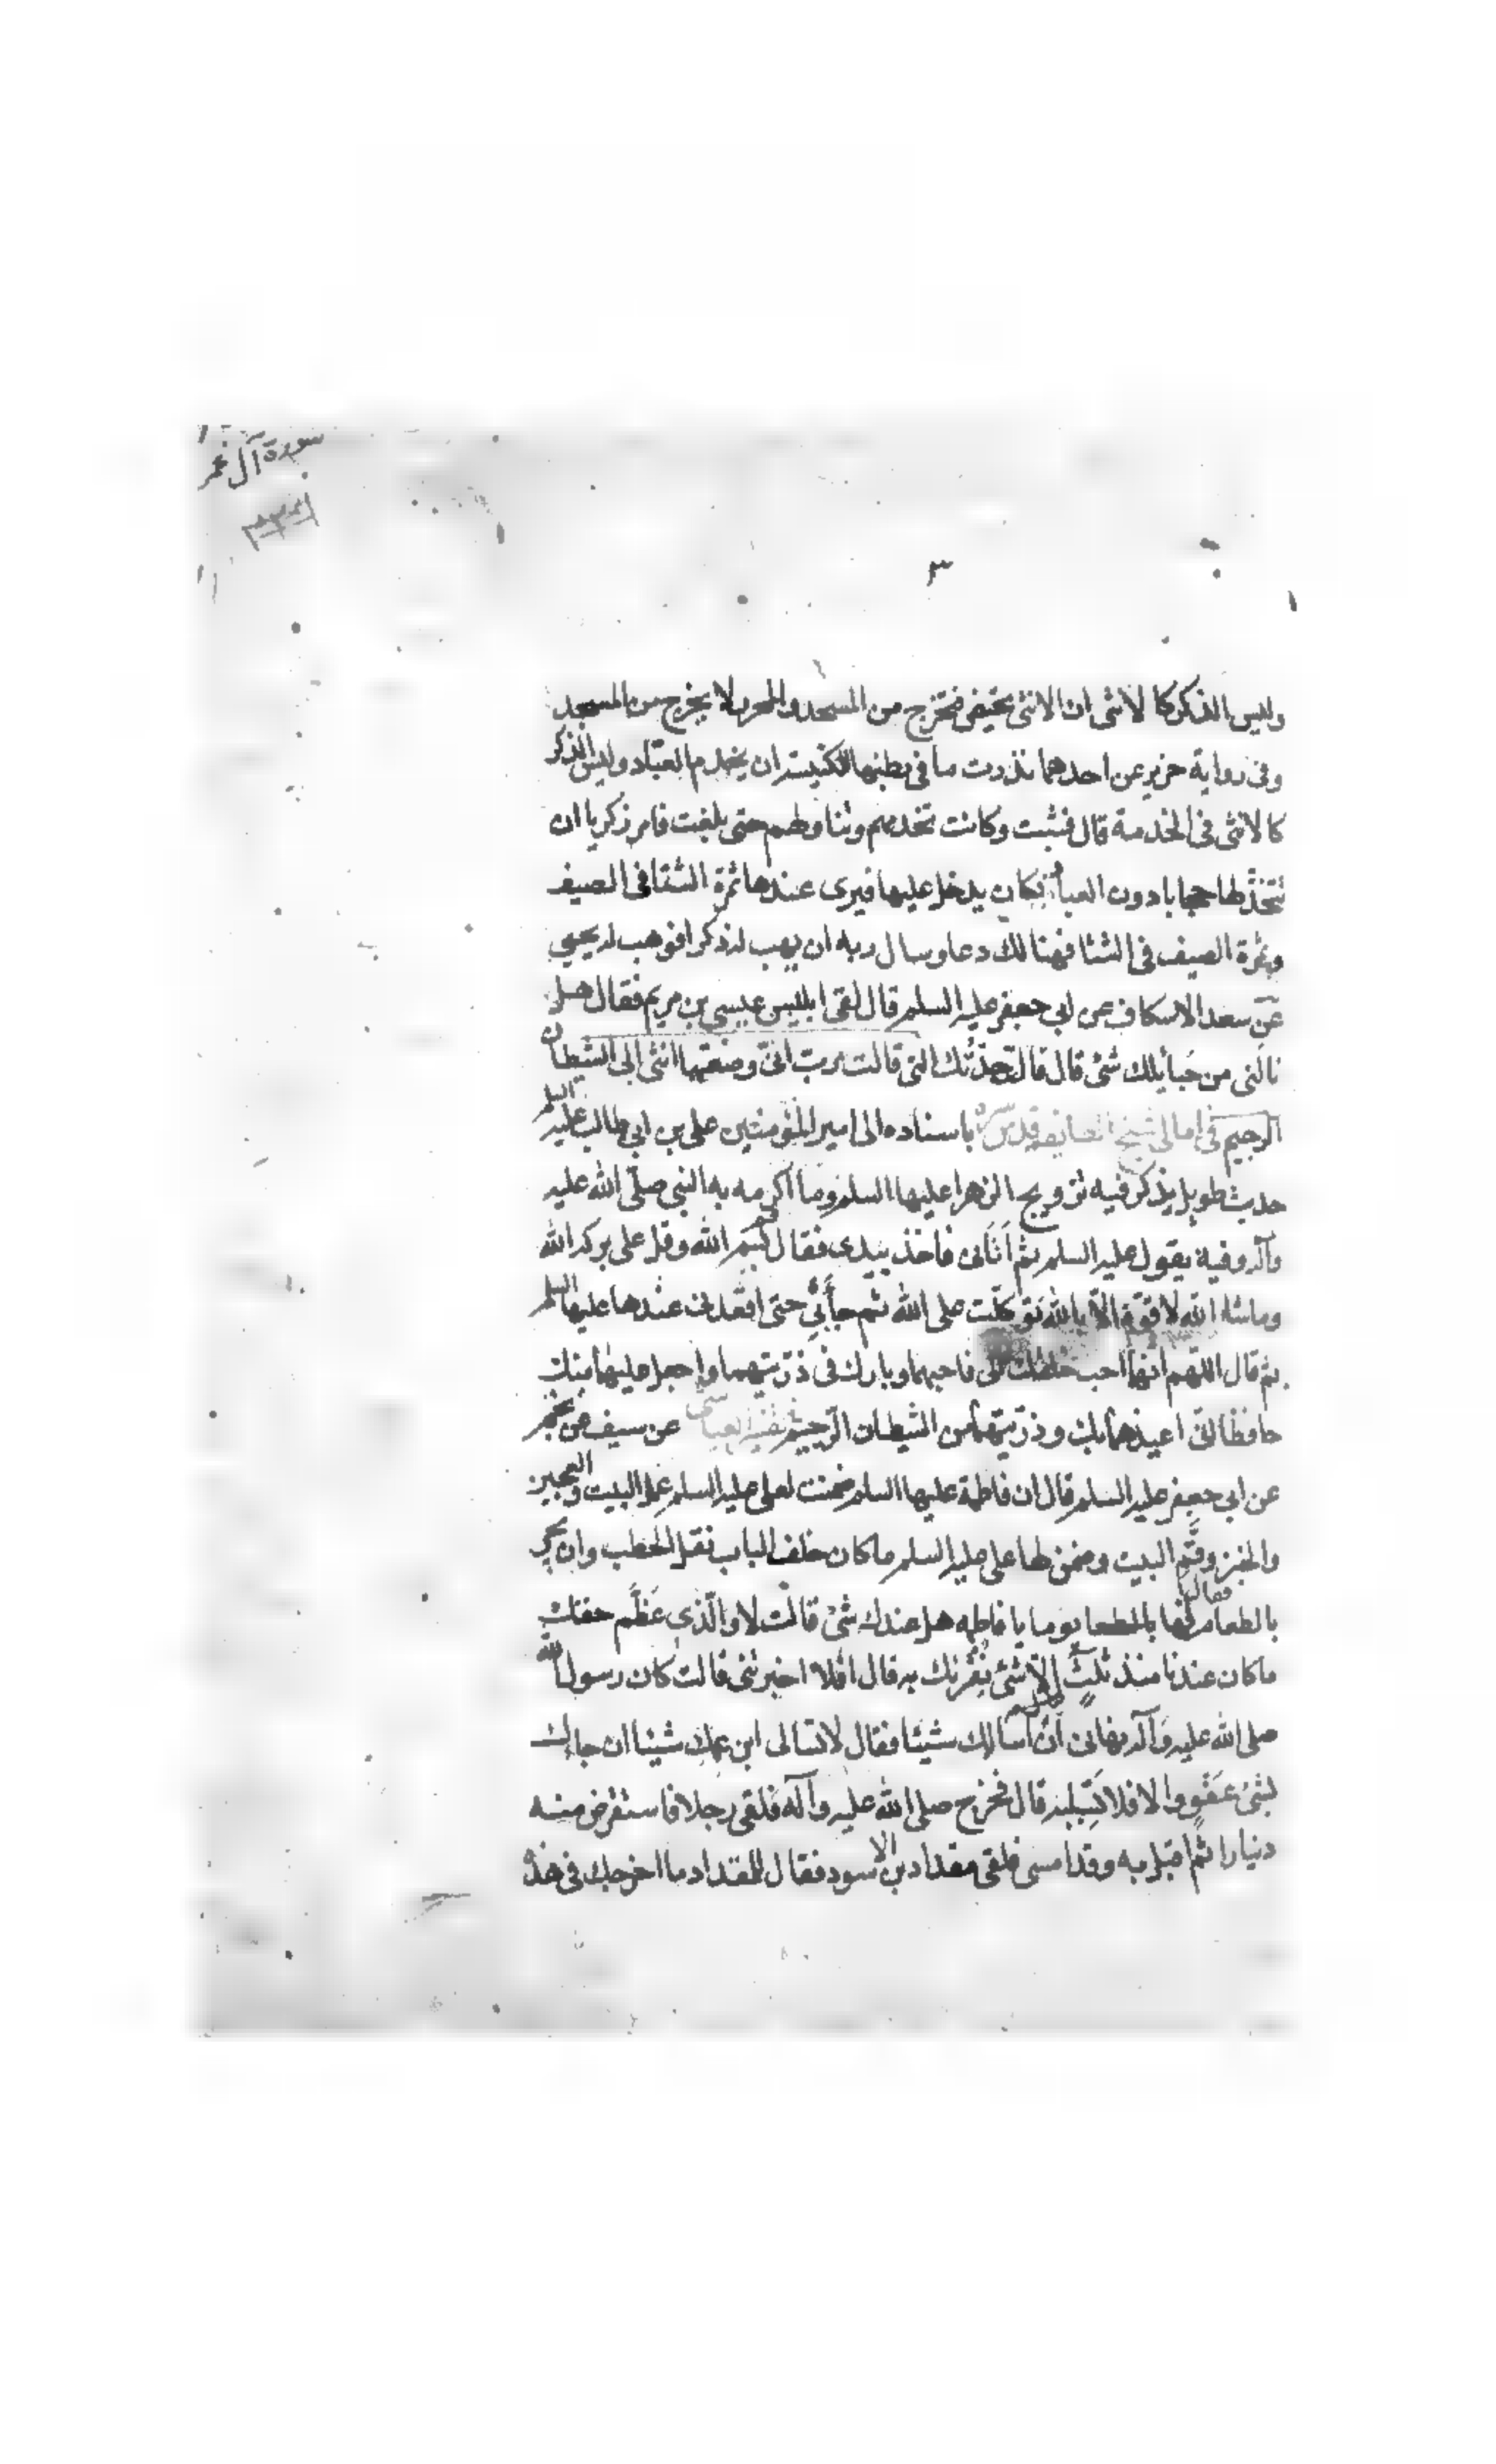 سورة آل عمر
٣
وليس الذكر كالانثى ان الانثى تحيض فتخرج من المسجد والمحرر لا يخرج من المسجد
وفى رواية حريز عن احدهما نذرت ما فى بطنها للكنيسة ان يخدم العباد وليس الذكر
كالانثى فى الخدمة قال فشبت وكانت تخدمهم وتناولهم حتى بلغت فامر زكريا ان
تتخذ لها حجابا دون العباد فكان يدخل عليها فيرى عندها ثمرة الشتا فى الصيف
وثمرة الصيف فى الشتا فهنالك دعا وسال ربه ان يهب له ذكرا فوهب له يحيى
عن سعد الاسكاف عن ابي جعفر عليه السلم قال لقى ابليس عيسى بن مريم فقال هل
نالنى من حبائلك شئ قال قال جدتك التى قالت رب انى وضعتها انثى الى الشيطان
الرجيم فى امالى شيخ الطايفة قدس سره باسناده الى امير المؤمنين على بن ابى طالب عليه السلم
حديث طويل يذكر فيه تزويج الزهرا عليها السلم وما اكرمه به النبى صلى الله عليه
وآله وفيه يقول عليه السلم ثم اتانى فاخذ بيدى فقال قم بسم الله وقل على بركة الله
وما شاء الله لا قوة الا بالله توكلت على الله ثم جاءنى حتى اقعدنى عندها عليها السلم
ثم قال اللهم انهما احب خلقك الى فاحبهما وبارك فى ذريتهما واجعل عليهما منك
حافظا انى اعيذهما بك وذريتهما من الشيطان الرجيم تفسير العياشى عن سيف عن نجم
عن ابى جعفر عليه السلم قال ان فاطمة عليها السلم ضمنت لعلى عليه السلم عمل البيت والعجين
والخبز وقم البيت وضمن لها على عليه السلم ما كان خلف الباب نقل الحطب وان يجئ
بالطعام فقال لها يوما يا فاطمه هل عندك شئ قالت لا والذى عظم حقك
ما كان عندنا منذ ثلث الا شئ نقريك به قال افلا اخبرتنى قالت كان رسول الله
صلى الله عليه وآله نهانى ان اسالك شيئا فقال لا تسالى ابن عمك شيئا ان جاءك
بشئ عفو والا فلا تسئليه قال فخرج صلى الله عليه وآله فلقى رجلا فاستقرض منه
دنيارا ثم اقبل به وقد امسى فلقى مقداد بن الاسود فقال للمقداد ما اخرجك فى هذه